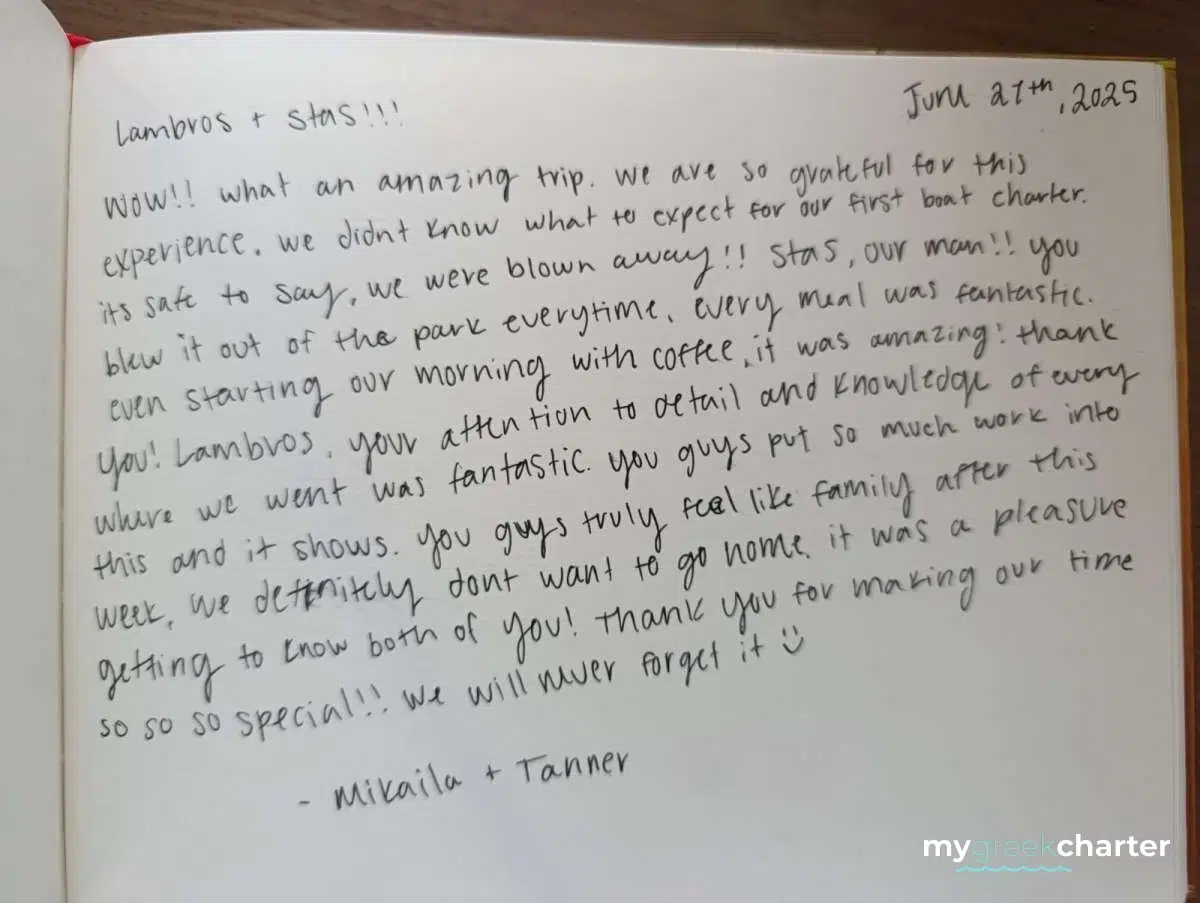 June 27th, 2025
Lambros + Stas!!!
WOW!! what an amazing trip. we are so grateful for this
experience. we didnt know what to expect for our first boat charter.
its safe to say, we were blown away!! Stas, our man!! you
blew it out of the park everytime. every meal was fantastic.
even starting our morning with coffee, it was amazing! thank
you! Lambros, your attention to detail and knowledge of every
where we went was fantastic. you guys put so much work into
this and it shows. you guys truly feel like family after this
week, we definitely dont want to go home. it was a pleasure
getting to know both of you! thank you for making our time
so so so special!! we will never forget it :)
- Mikaila + Tanner
mygreekcharter